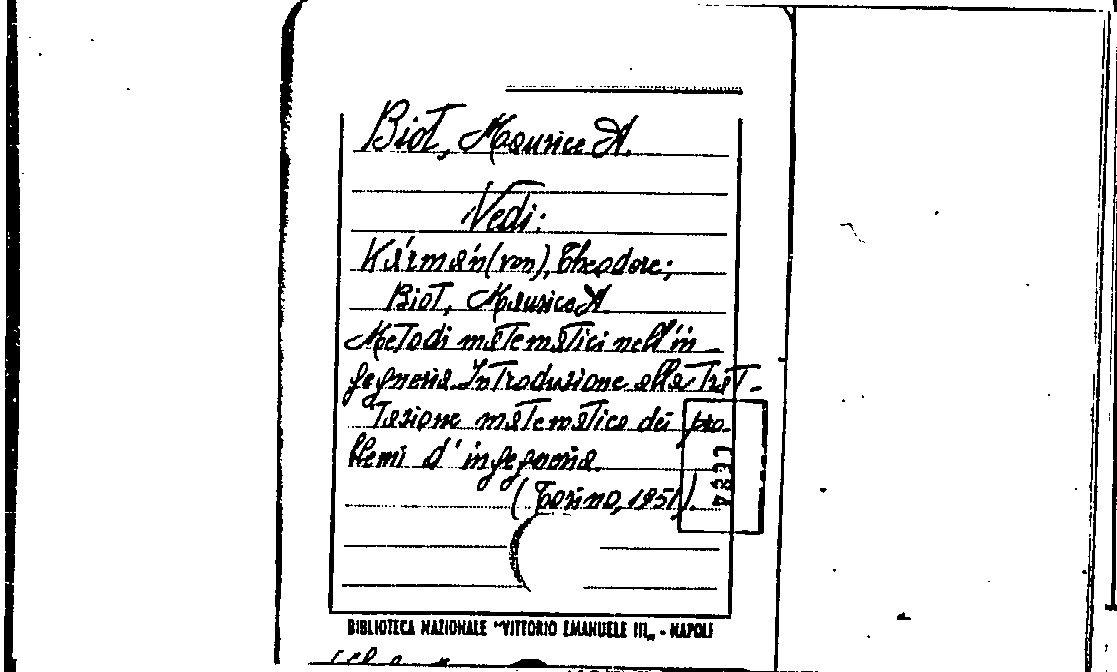 Biot, Maurice A.
Vedi:
Kármán (von), Theodore;
Biot, Maurice A.
Metodi matematici nell'in-
gegneria. Introduzione alla trat-
tazione matematica dei pro-
blemi d'ingegneria.
(Torino, 1951).
BIBLIOTECA NAZIONALE "VITTORIO EMANUELE III„ - NAPOLI